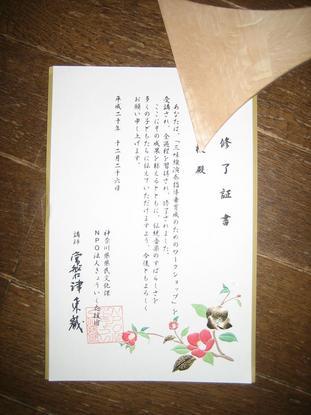 修了証書
殿
あなたは、「三味線演奏指導者育成のためのワークショップ」を
受講され、全過程を習得され、修了されました。
ここにその成果を称えるとともに、伝統音楽のすばらしさを
多くの子どもたちに伝えていただけますよう、今後ともよろしく
お願い申し上げます。
平成二十年 十二月二十六日
神奈川県県民文化課
NPO法人きょういく応援団
講師 常磐津 東蔵